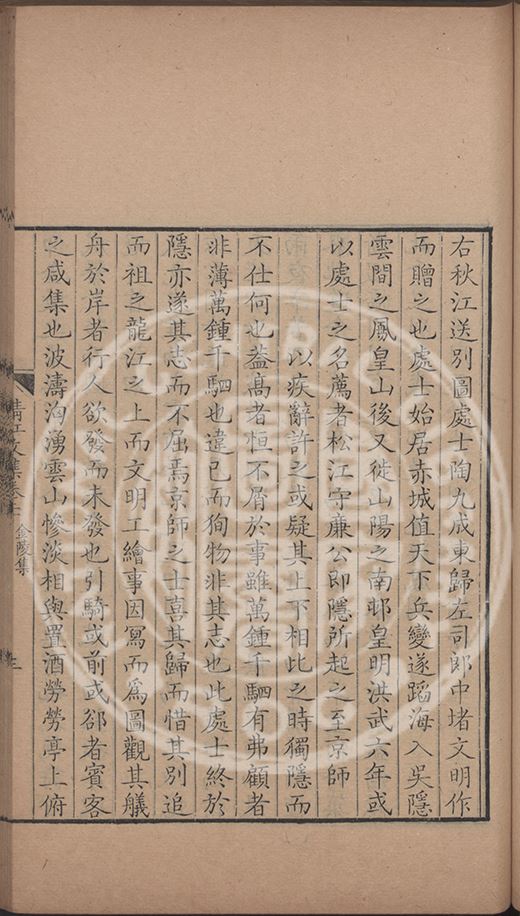 右秋江送別圖處士陶九成東歸左司郎中堵文明作
而贈之也處士始居赤城值天下兵變遂蹈海入吳隱
雲間之鳳皇山後又徙山陽之南邨皇明洪武六年或
以處士之名薦者松江守廉公即隱所起之至京師
以疾辭許之或疑其上下相此之時獨隱而
不仕何也葢髙者恒不屑於事雖萬鍾千駟有弗顧者
非薄萬鍾千駟也違已而狥物非其志也此處士終於
隱亦遂其志而不屈焉京師之士喜其歸而惜其別追
而祖之龍江之上而文明工繪事因寫而爲圖觀其艤
舟於岸者行人欲發而未發也引騎或前或郤者賓客
之咸集也波濤洶湧雲山慘淡相與置酒勞勞亭上俯
清江文集卷十 金陵集
三